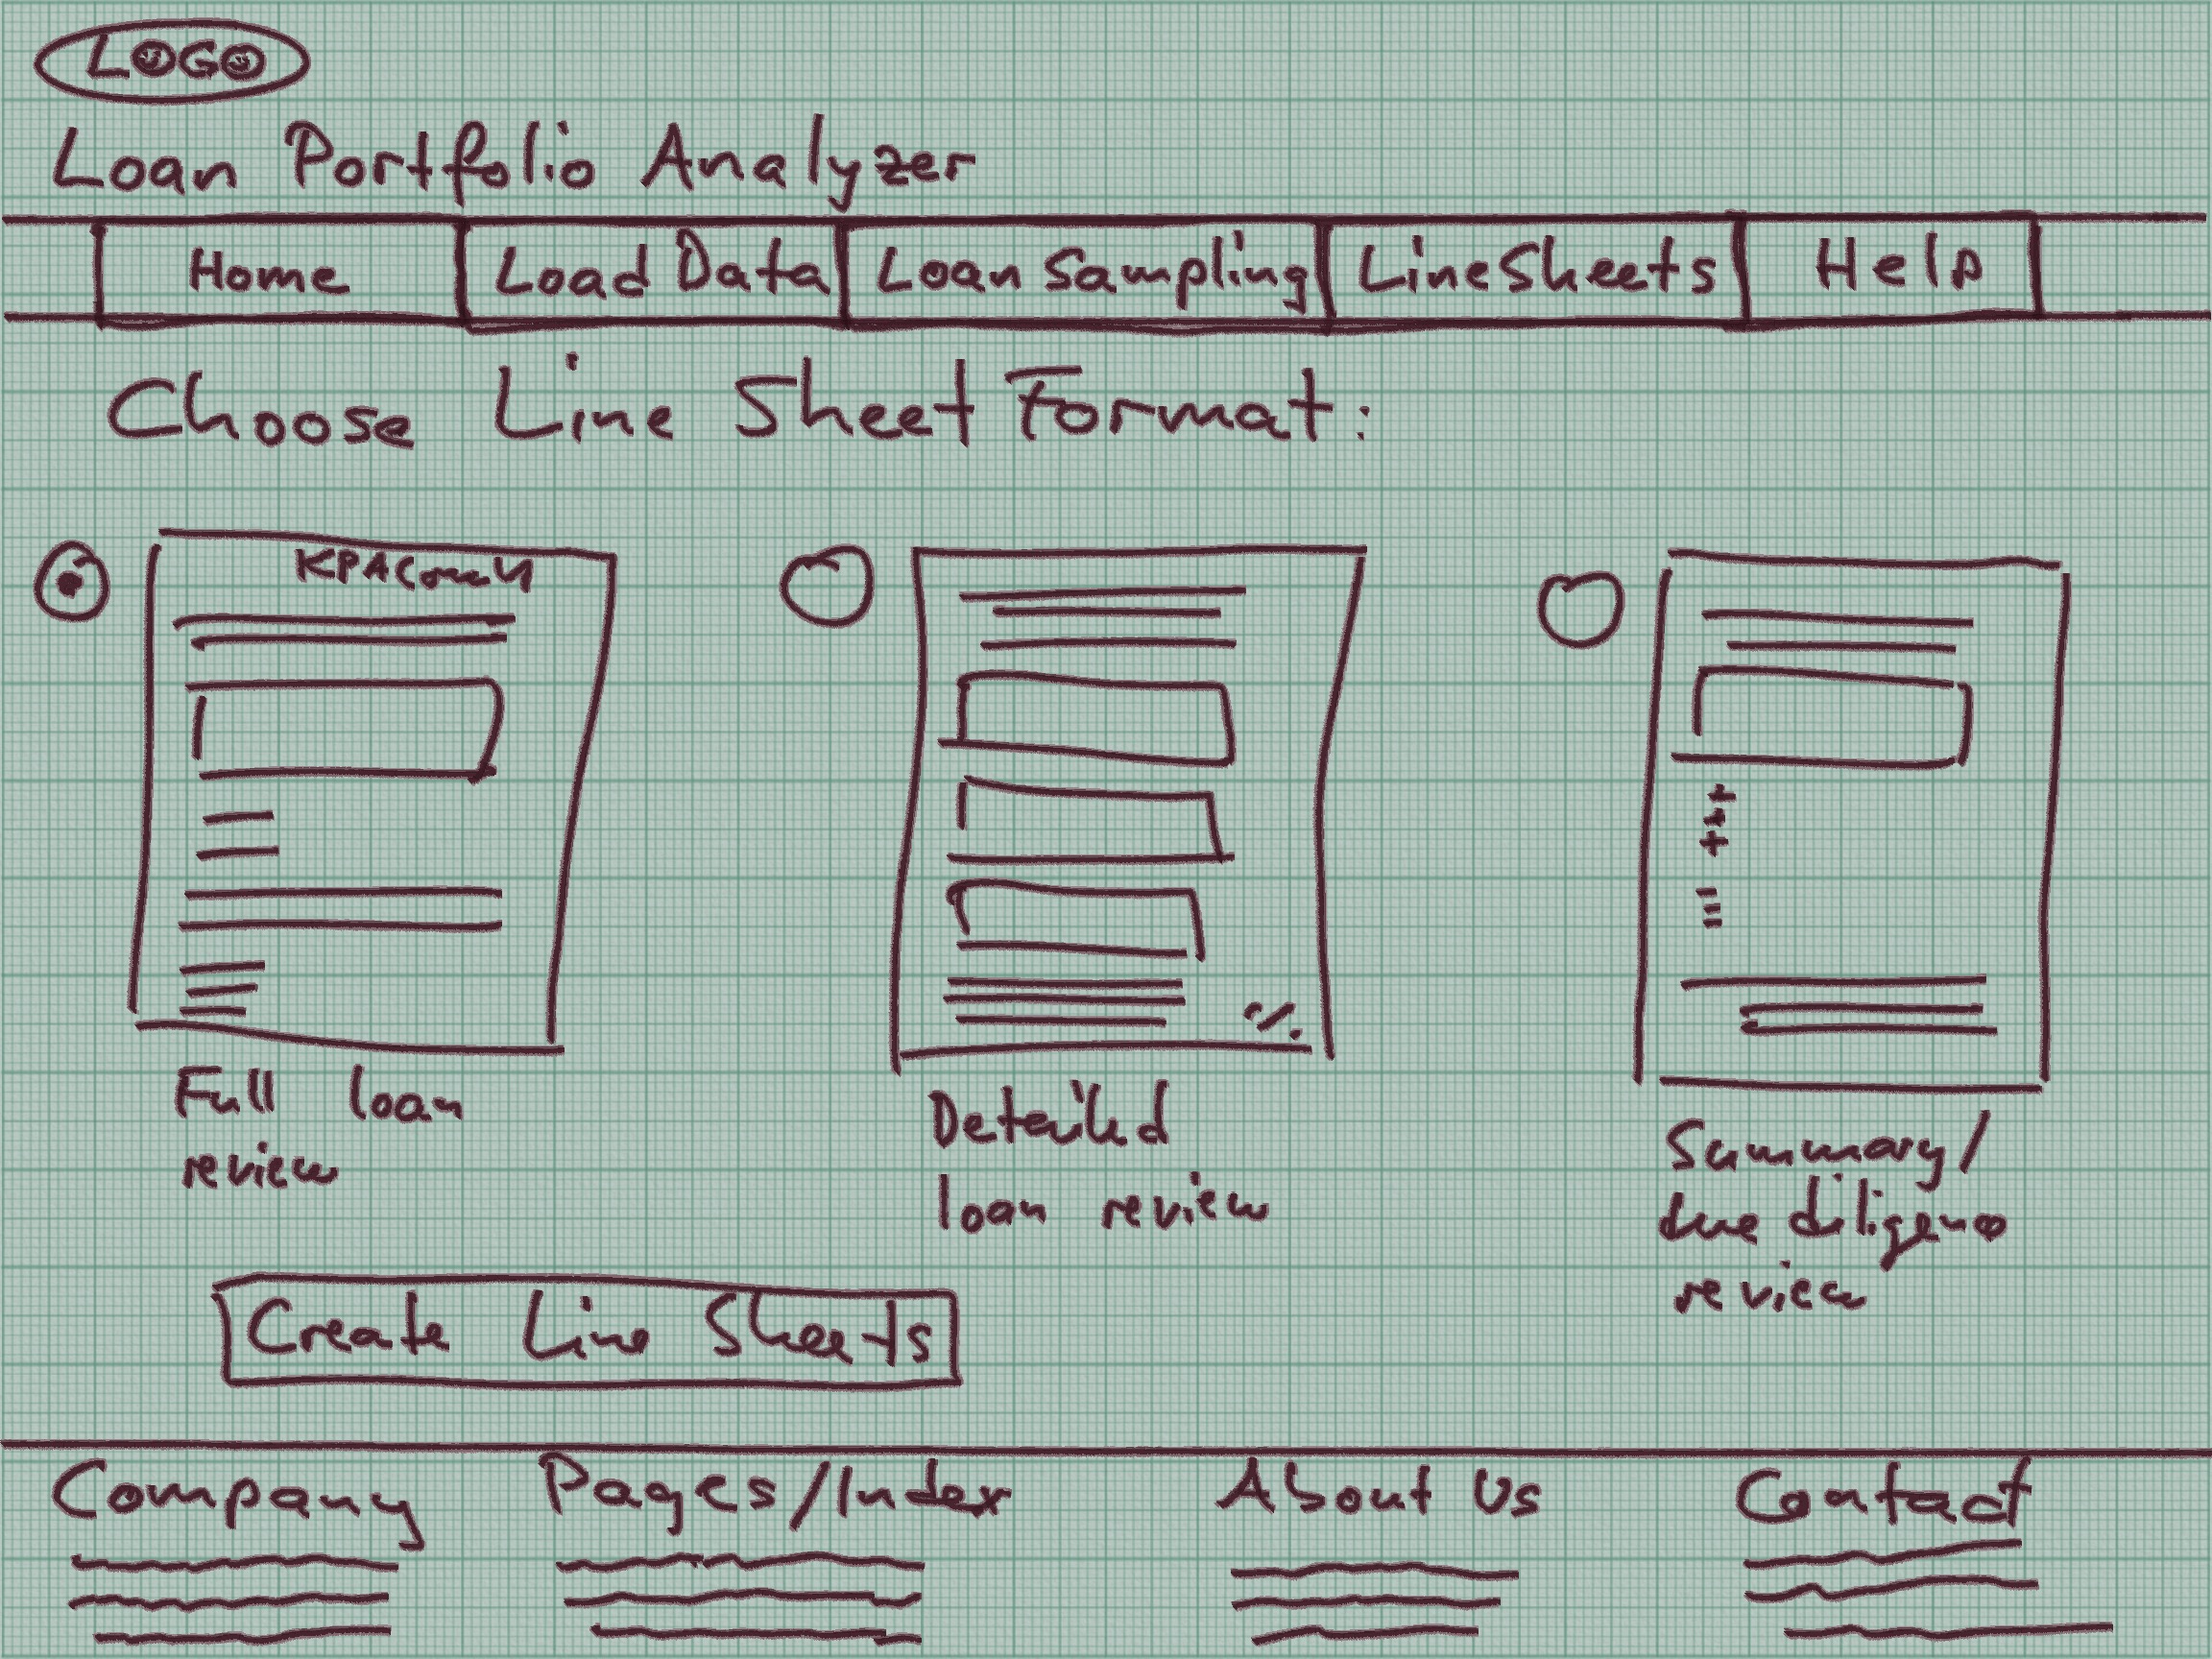 LOGO
Loan Portfolio Analyzer
Home
Load Data
Loan Sampling
Line Sheets
Help
Choose Line Sheet Format:
Full loan
review
Detailed
loan review
Summary/
due diligence
review
Create Line Sheets
Company
Pages/Index
About Us
Contact